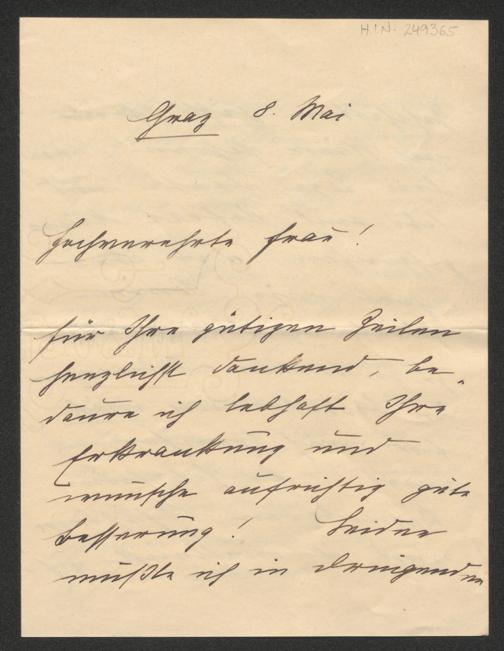 H.I.N. 249365
Graz 8. Mai
Hochverehrte Frau!
für Ihre gütigen Zeilen
herzlichst dankend, be-
daure ich lebhaft Ihre
Erkrankung und
wünsche aufrichtig gute
Besserung! Leider
mußte ich in dringenden